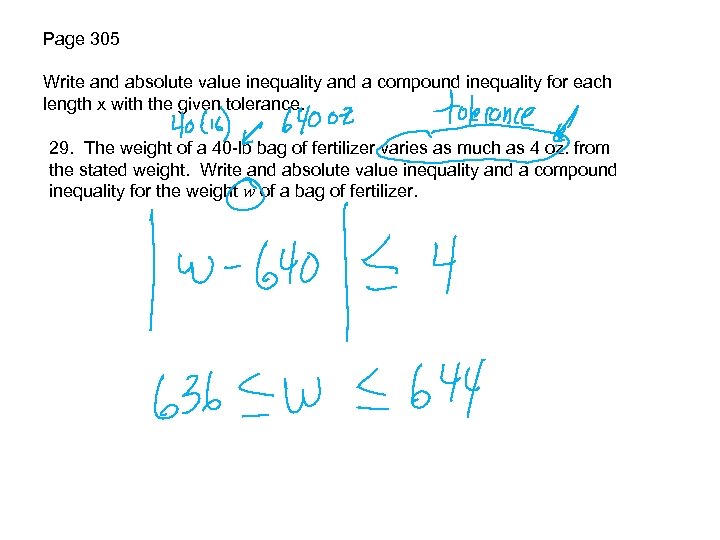 Page 305
Write and absolute value inequality and a compound inequality for each
length x with the given tolerance.
40(16) 640 oz tolerance
29. The weight of a 40-lb bag of fertilizer varies as much as 4 oz. from
the stated weight. Write and absolute value inequality and a compound
inequality for the weight w of a bag of fertilizer.
|w - 640| ≤ 4
636 ≤ w ≤ 644